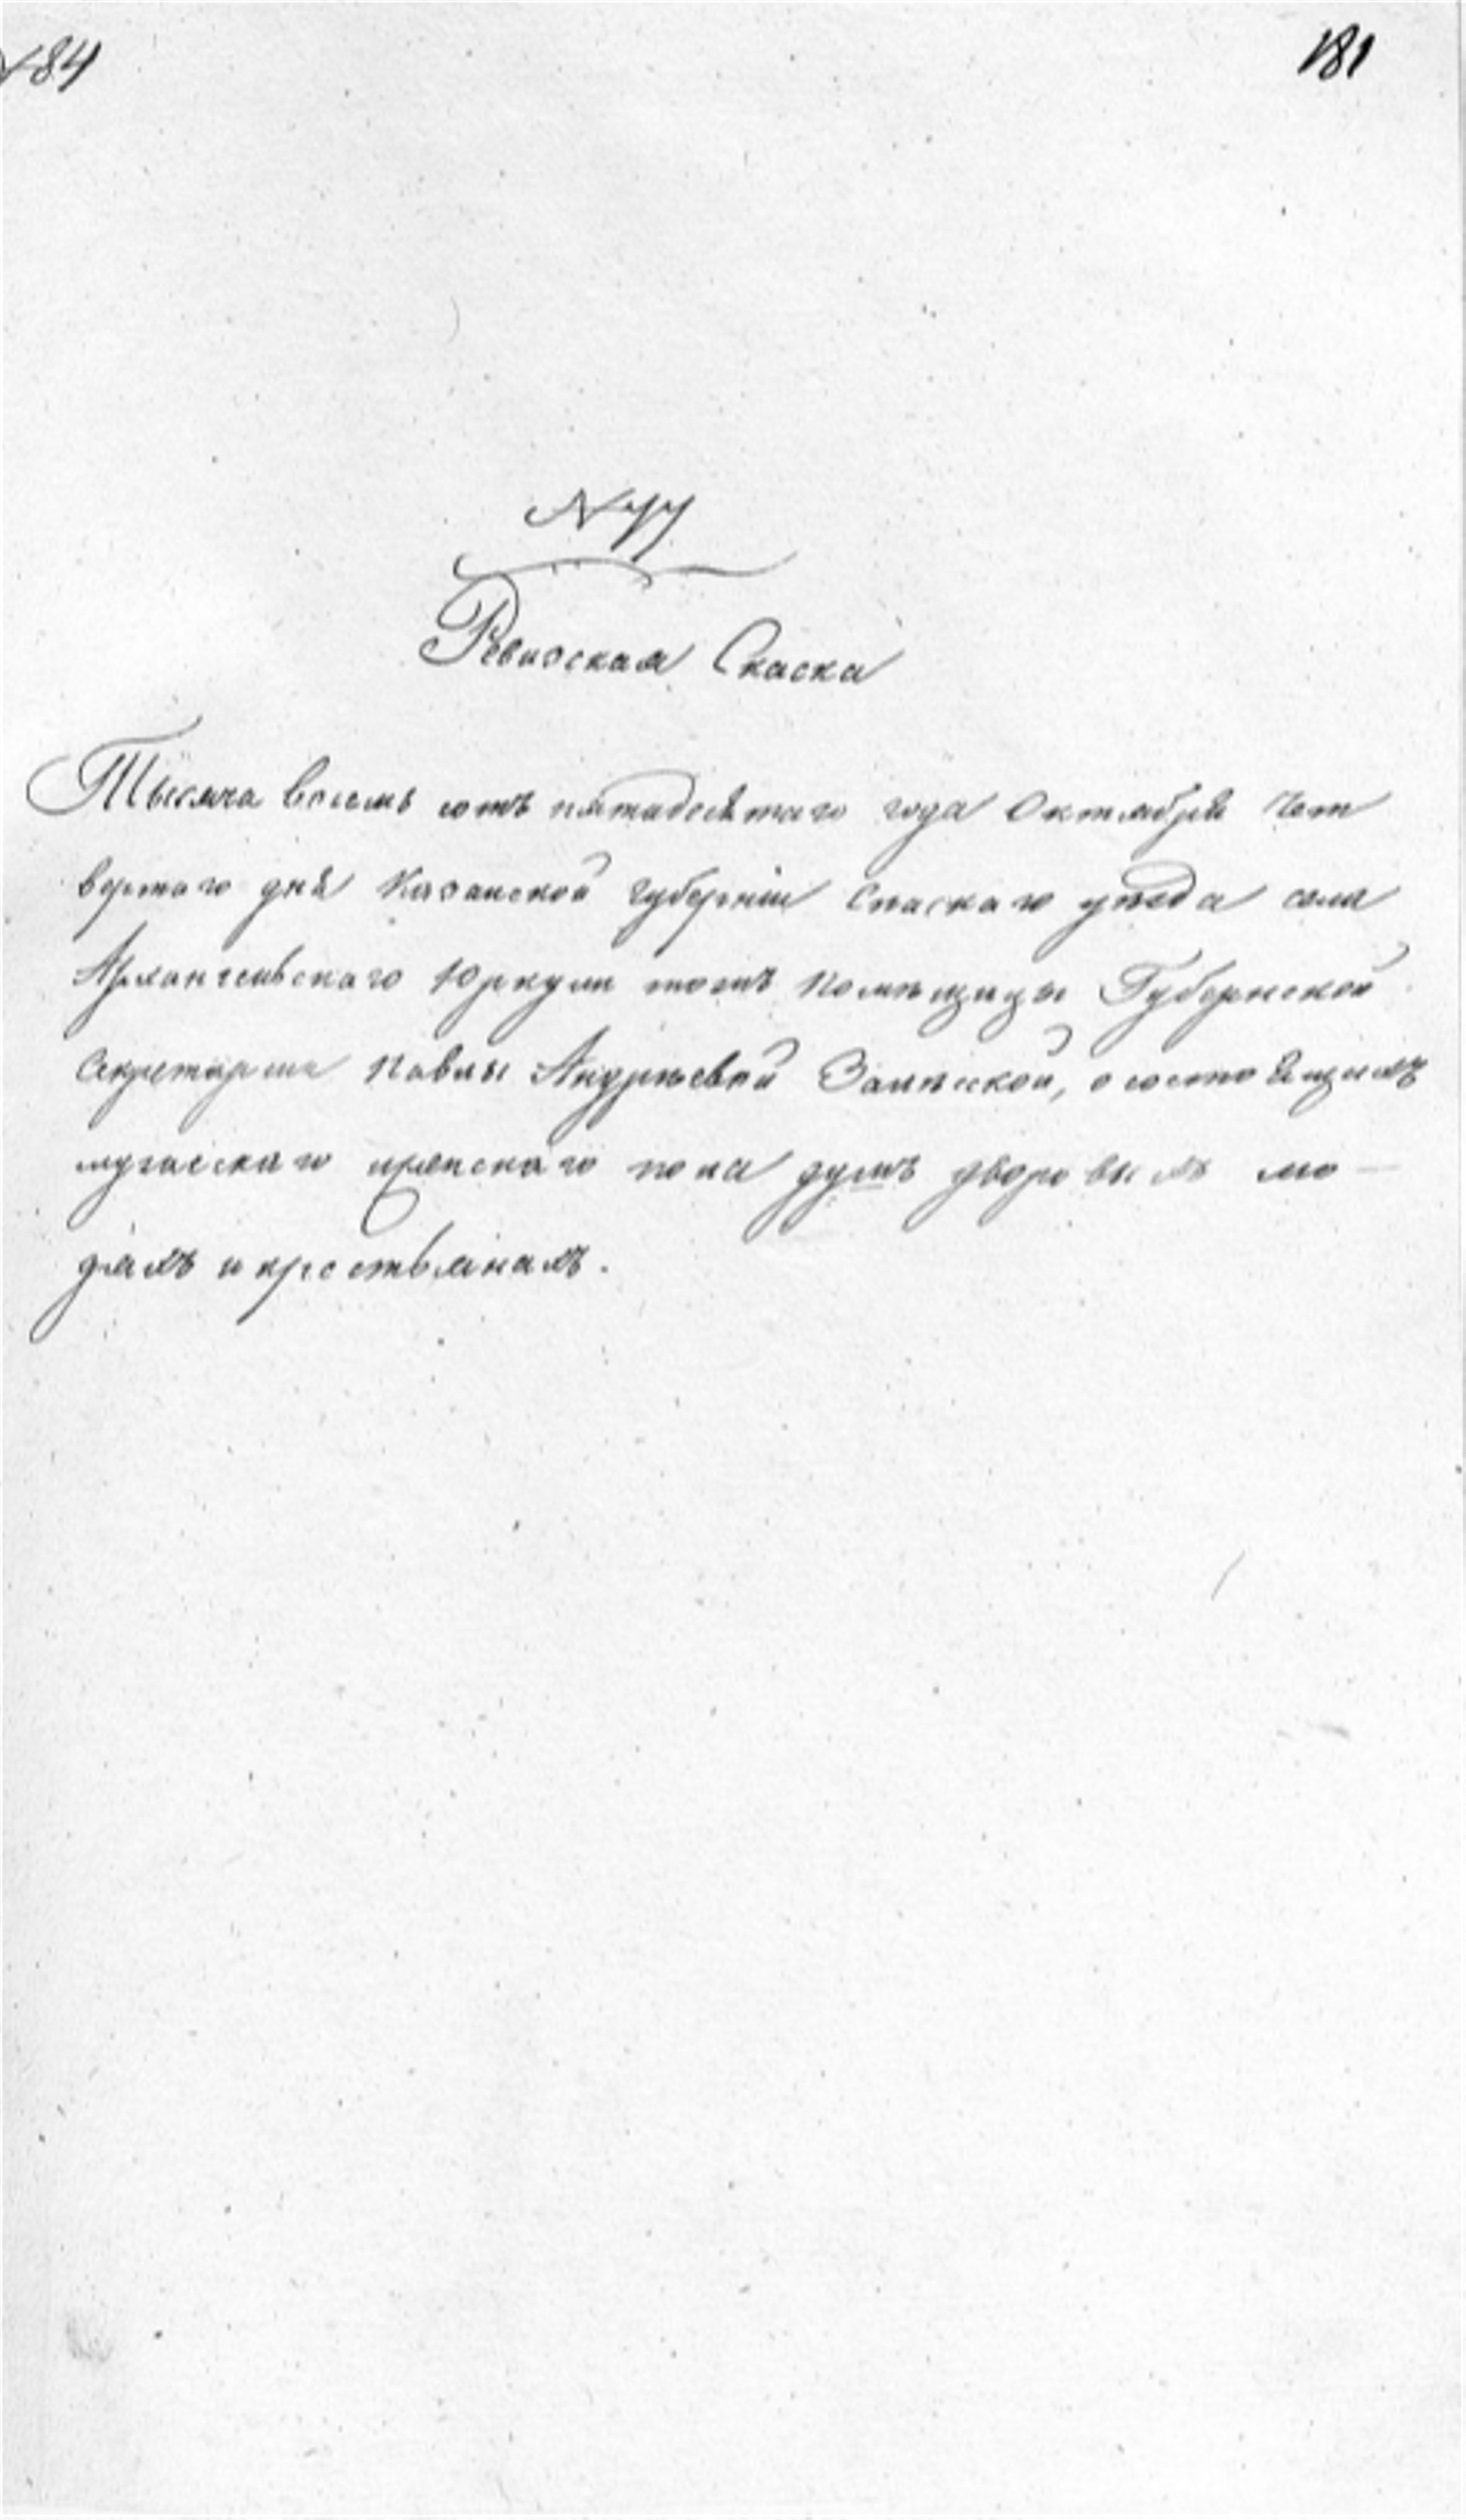 184 181
N 44
Ревизская Скаска
Тысяча восемь сотъ пятидесятаго года Октября чет
вертаго дня Казанской губерніи Спаскаго уѣзда села
Архангельскаго Юркули тожъ помѣщицы Губернской
Секретарши Павлы Андрѣевой, о состоящихъ
мужескаго и женскаго пола душъ дворовыхъ лю-
дяхъ и крестьянахъ.